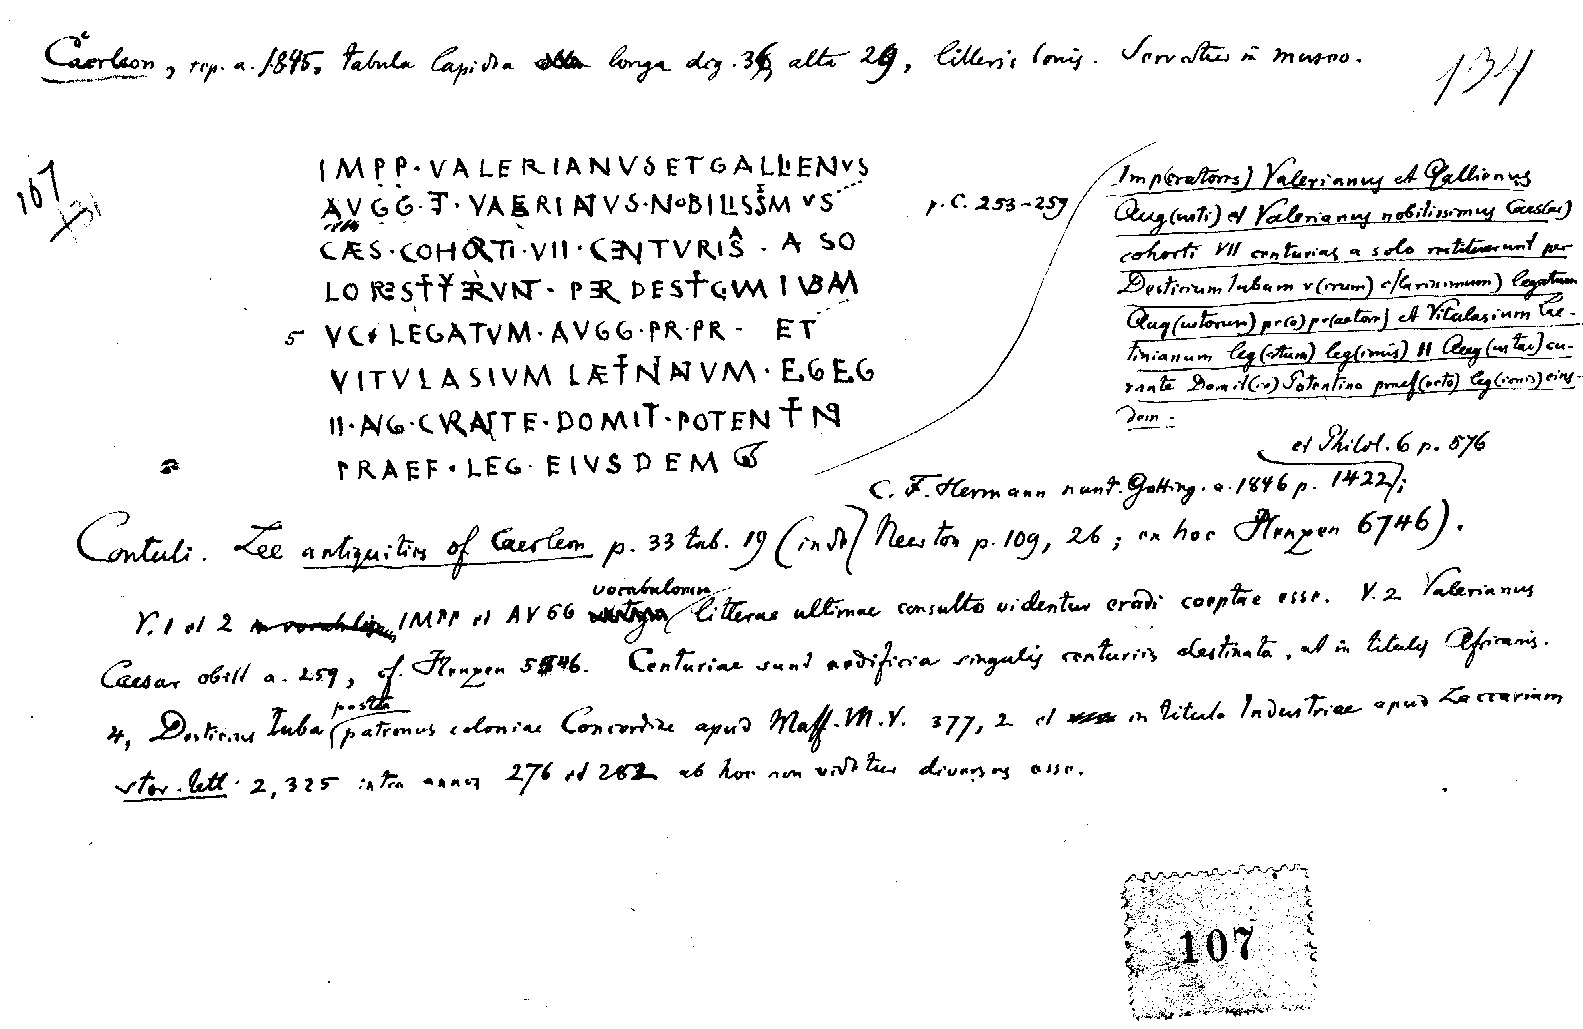 Caerleon, rep. a. 1845, tabula lapidea longa dig. 36 alta 29, litteris bonis. Servatur in museo.
134
107
131
IMPP·VALERIANVS ET GALLIENVS
AVGG·ET·VALERIANVS·NOBILISSIMVS
CAES·COHORTI·VII·CENTVRIAS·A SO
LO RESTITVERVNT·PER DESTICIVM IVBAM
p. C. 253-259
5 VC· LEGATVM·AVGG·PR·PR· ET
VITVLASIVM LAETINIANVM·LEG LEG
II·AVG·CVRANTE·DOMIT·POTENTINO
PRAEF·LEG·EIVSDEM
Imp(eratores) Valerianus et Gallienus
Aug(usti) et Valerianus nobilissimus Caes(ar)
cohorti VII centurias a solo restituerunt per
Desticium Iubam v(irum) c(larissimum) legatum
Aug(ustorum) pr(o) pr(aetore) et Vitulasium Lae-
tinianum leg(atum) leg(ionis) II Aug(ustae) cu-
rante Domit(io) Potentino praef(ecto) leg(ionis) eius-
dem.
et Philol. 6 p. 576
C. F. Hermann nunt. Gotting. a. 1846 p. 1422);
Contuli. Lee antiquities of Caerleon p. 33 tab. 19 (inde Newton p. 109, 26; ex hoc Henzen 6746).
V. 1 et 2 IMPP et AVGG vocabulorum litterae ultimae consulto videntur eradi coeptae esse. V. 2 Valerianus
Caesar obiit a. 259, cf. Henzen 5546. Centuriae sunt aedificia singulis centuriis destinata, ut in titulis Africanis.
4, Desticius Iuba postea patronus coloniae Concordiae apud Maff. M. V. 377, 2 et in titulo Industriae apud Zaccarium
stor. lett. 2, 325 intra annos 276 et 282 ab hoc non videtur diversus esse.
107